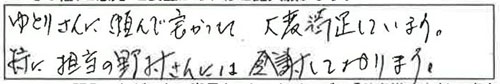 ゆとりさんに頼んで良かった 大変満足しています。
特に担当の野村さんには感謝しております。